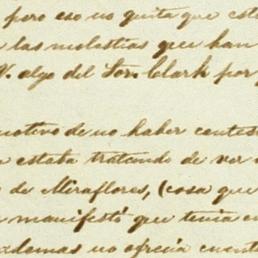 pero eso no quita que est
las molestias que han
V. algo del Sor. Clark por
motivo de no haber contes
estaba tratando de ver
de Miraflores, (cosa que
manifestó que tenia en
ademas no ofrecia cuenta